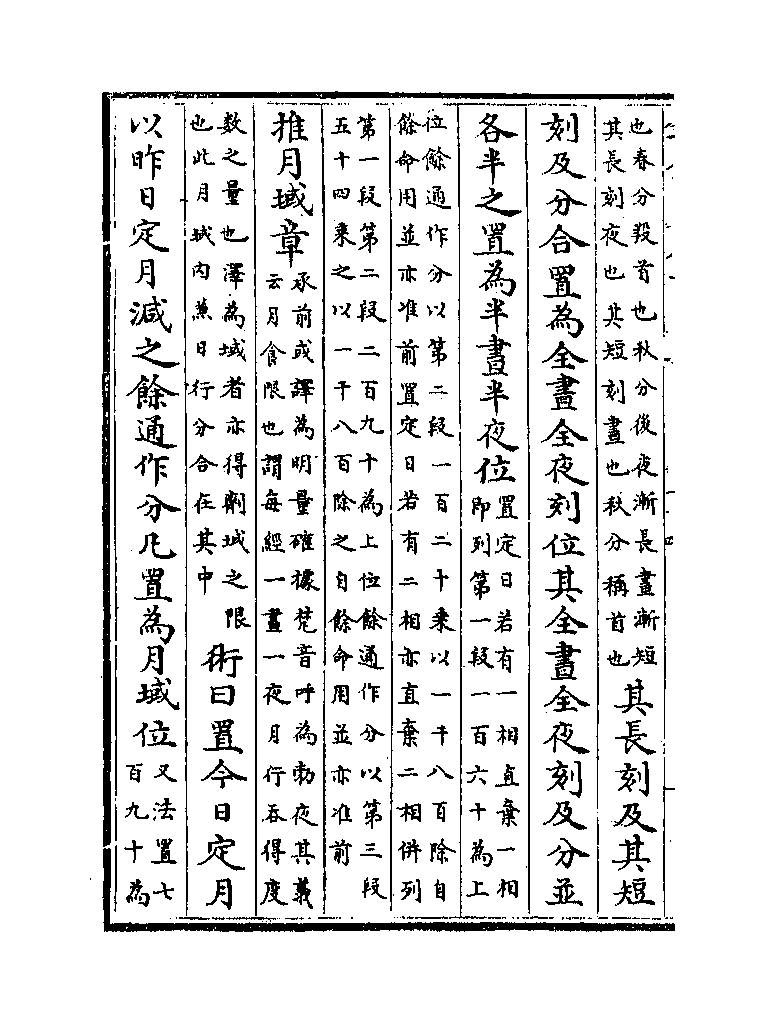 也春分羖首也秋分後夜漸長晝漸短
其長刻夜也其短刻晝也秋分稱首也
其長刻及其短
刻及分合置為全晝全夜刻位其全晝全夜刻及分並
各半之置為半晝半夜位
置定日若有一相直棄一相
即列第一段一百六十為上
位餘通作分以第二段一百二十乘以一千八百除自
餘命用並亦准前置定日若有二相亦直棄二相併列
第一段第二段二百九十為上位餘通作分以第三段
五十四乘之以一千八百除之自餘命用並亦准前
推月域章
承前或譯為明量確據梵音呼為勃夜其義
云月食限也謂每經一晝一夜月行吞得度
數之量也澤為域者亦得剬域之限
也此月域内兼日行分合在其中
術曰置今日定月
以昨日定月減之餘通作分凡置為月域位
又法置七
百九十為